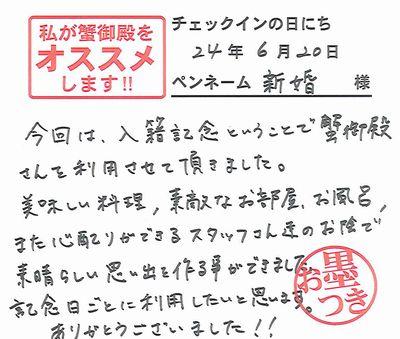 私が蟹御殿を
オススメ
します!!
チェックインの日にち
24年 6月20日
ペンネーム 新婚 様
今回は、入籍記念ということで蟹御殿
さんを利用させて頂きました。
美味しい料理，素敵なお部屋、お風呂，
また心配りができるスタッフさん達のお陰で
素晴らしい思い出を作る事ができました。
記念日ごとに利用したいと思います。
ありがとうございました!!
お墨
つき